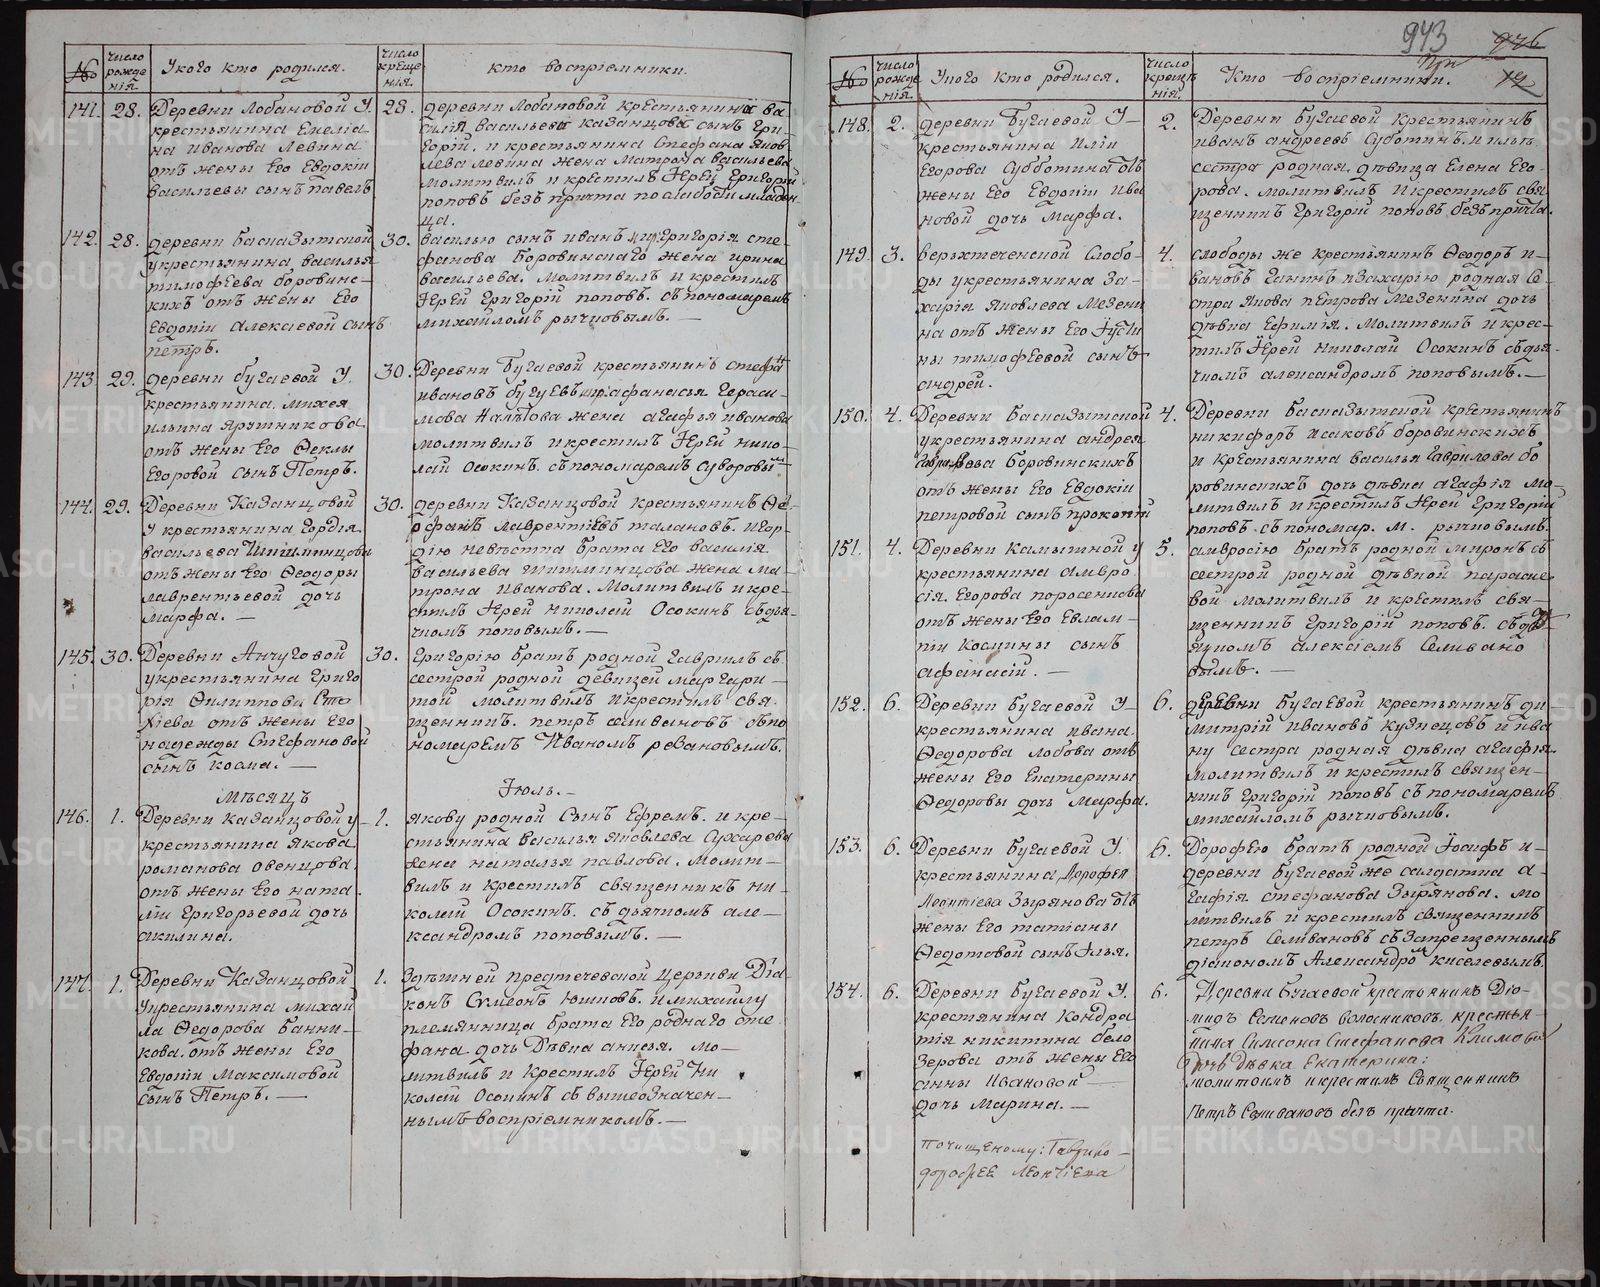 №
число рожде нія.
У кого кто родился.
число креще нія.
кто воспріемники.
141.
28.
Деревни Лобановой У
крестьянина Емеліа
на Иванова Левина
отъ жены Его Евдокіи
васильевы сынъ павелъ
28.
деревни Лобановой крестьянина ва
силія васильева казанцова сынъ гри
горій, и крестьянина Стефана Яков
лева левина жена матрона васильева
молитвилъ и крестилъ Іерей григорій
поповъ безъ причта по слабости младен
ца.
142.
28.
деревни Басказытской
у крестьянина василья
тимофѣева боровин-
скихъ отъ жены Его
Евдокіи алексѣевой сынъ
петръ.
30.
василью сынъ иванъ и григорія сте-
фанова Боровинскаго жена ирина
васильева. молитвилъ и крестилъ
Іерей григорій поповъ. съ пономаремъ
михайломъ рычковымъ. —
143.
29.
деревни бугаевой У.
крестьянина. михея
ильина Ярушникова
отъ жены Его Ѳеклы
Егоровой сынъ Петръ.
30.
Деревни Бугаевой крестьянинъ стефа
ивановъ бугуевъ и афанасья гераси-
мова Налѣтова жена агафья иванова
молитвилъ и крестилъ Іерей нико-
лай Осокинъ. съ пономаремъ суворовы
144.
29.
Деревни Казанцовой
У крестьянина гордія
васильева Шишминцова
отъ жены Его Ѳеодоры
лаврентьевой дочь
марфа. —
30.
деревни Казанцовой крестьянинъ Ѳе-
офанъ лаврентіевъ талановъ. и гор-
дію невѣстка брата Его василія
васильева шитминцова жена ма-
трона иванова. молитвилъ и кре-
стилъ Іерей николай Осокинъ съ дья-
чкомъ поповымъ. —
145.
30.
Деревни Анчуговой
у крестьянина григо
рія Филиппова Сто
хіева отъ жены Его
надежды Стефановой
сынъ косма. —
30.
григорію братъ родной гаврилъ съ
сестрой родной дѣвицей маргари-
той молитвилъ и крестилъ свя
щенникъ. петръ селивановъ съ по
номаремъ Иваномъ ревановымъ.
Мѣсяцъ
Іюль. —
146.
1.
Деревни казанцовой у
крестьянина якова
романова овенцова
отъ жены Его ната
ліи григорьевой дочь
акилина.
1.
якову родной сынъ Ефремъ. и кре-
стьянина василья яковлева Сухарева
жена наталья павлова. молит-
вилъ и крестилъ священникъ ни-
колай Осокинъ. съ дьячкомъ але-
ксандромъ поповымъ. —
147.
1.
Деревни Казанцовой
у крестьянина михай
ла Ѳедорова Банни-
кова. отъ жены Его
Евдокіи Максимовой
сынъ Петръ. —
1.
Здѣшней предтечевской церкви Діа
конъ Сумеонъ Юшковъ. и михайлу
племянница брата Его роднаго сте
фана. дочь Дѣвка анисья. мо-
литвилъ и крестилъ Іерей Ни
колай Осокинъ съ вышеозначен-
нымъ воспріемникомъ. —
943
946
№
число рожде нія.
У кого кто родился.
число креще нія.
Кто воспріемники.
148.
2.
деревни Бугаевой У
крестьянина Иліи
Егорова Субботина отъ
жены Его Евдокіи ива
новой дочь марфа.
2.
Деревни бугаевой крестьянинъ
иванъ андреевъ субботинъ и ильи
сестра родная. дѣвица Елена Его-
рова. молитвилъ и крестилъ свя
щенникъ григорій поповъ безъ причта.
149.
3.
верхтеченской Слобо-
ды у крестьянина За-
харія Яковлева мезени
на отъ жены Его Іусти
ны тимофѣевой сынъ
андрей.
4.
слободы же крестьянинъ Ѳеодоръ и-
вановъ ганинъ и Захарію родная Се-
стра Якова петрова мезенина дочь
дѣвка Ефимія. молитвилъ и крес-
тилъ Іерей николай Осокинъ съ дья-
чкомъ александромъ поповымъ. —
150.
4.
Деревни Басказытской
у крестьянина андрея
Боровинскихъ
отъ жены Его Евдокіи
петровой сынъ прокопій
4.
Деревни Басказытской крестьянинъ
никифоръ исаковъ боровинскихъ
и крестьянина василья гаврилова бо
ровинскихъ дочь дѣвка агафія мо-
литвилъ и крестилъ Іерей григорій
поповъ. съ пономар. м. рычковымъ.
151.
4.
Деревни камышной у
крестьянина амвро
сія. Егорова поросенкова
отъ жены Его Евлам-
піи космины сынъ
афанасій. —
5.
амвросію братъ родной миронъ съ
сестрой родной дѣвкой параске
вой молитвилъ и крестилъ свя-
щенникъ григорій поповъ. съ дья
чкомъ алексіемъ селивано
вымъ. —
152.
6.
Деревни бугаевой У
крестьянина ивана
Ѳедорова лобова отъ
жены Его Екатерины
Ѳедоровы дочь марфа.
6.
деревни бугаевой крестьянинъ ди-
митрій ивановъ кузнецовъ и ива
ну сестра родная дѣвка агафья.
молитвилъ и крестилъ священ-
никъ григорій поповъ съ пономаремъ
михайломъ рычковымъ.
153.
6.
Деревни Бугаевой У
крестьянина Дорофея
Леонтіева Зырянова отъ
жены Его татіаны
Ѳедотовой сынъ Илья.
6.
Дорофею братъ родной Іосифъ и-
деревни бугаевой же солдатка а-
гафія стефанова Зырянова. мо
литвилъ и крестилъ священникъ
петръ Селивановъ съ запрещеннымъ
діакономъ Александромъ киселевымъ.
154.
6.
Деревни Бугаевой У
крестьянина Кондра
тія никитина бело
зерова отъ жены Его
анны ивановой
дочь марина. —
6.
Деревни бугаевой крестьянинъ Діо-
мидъ Семеновъ волосниковъ. крестья-
нина Симеона Стефанова Климова
Дочь дѣвка Екатерина:
молитвилъ и крестилъ Священникъ
Петръ Селивановъ безъ причта.
По чищеному: Гаврило
дорофея Леонтіева